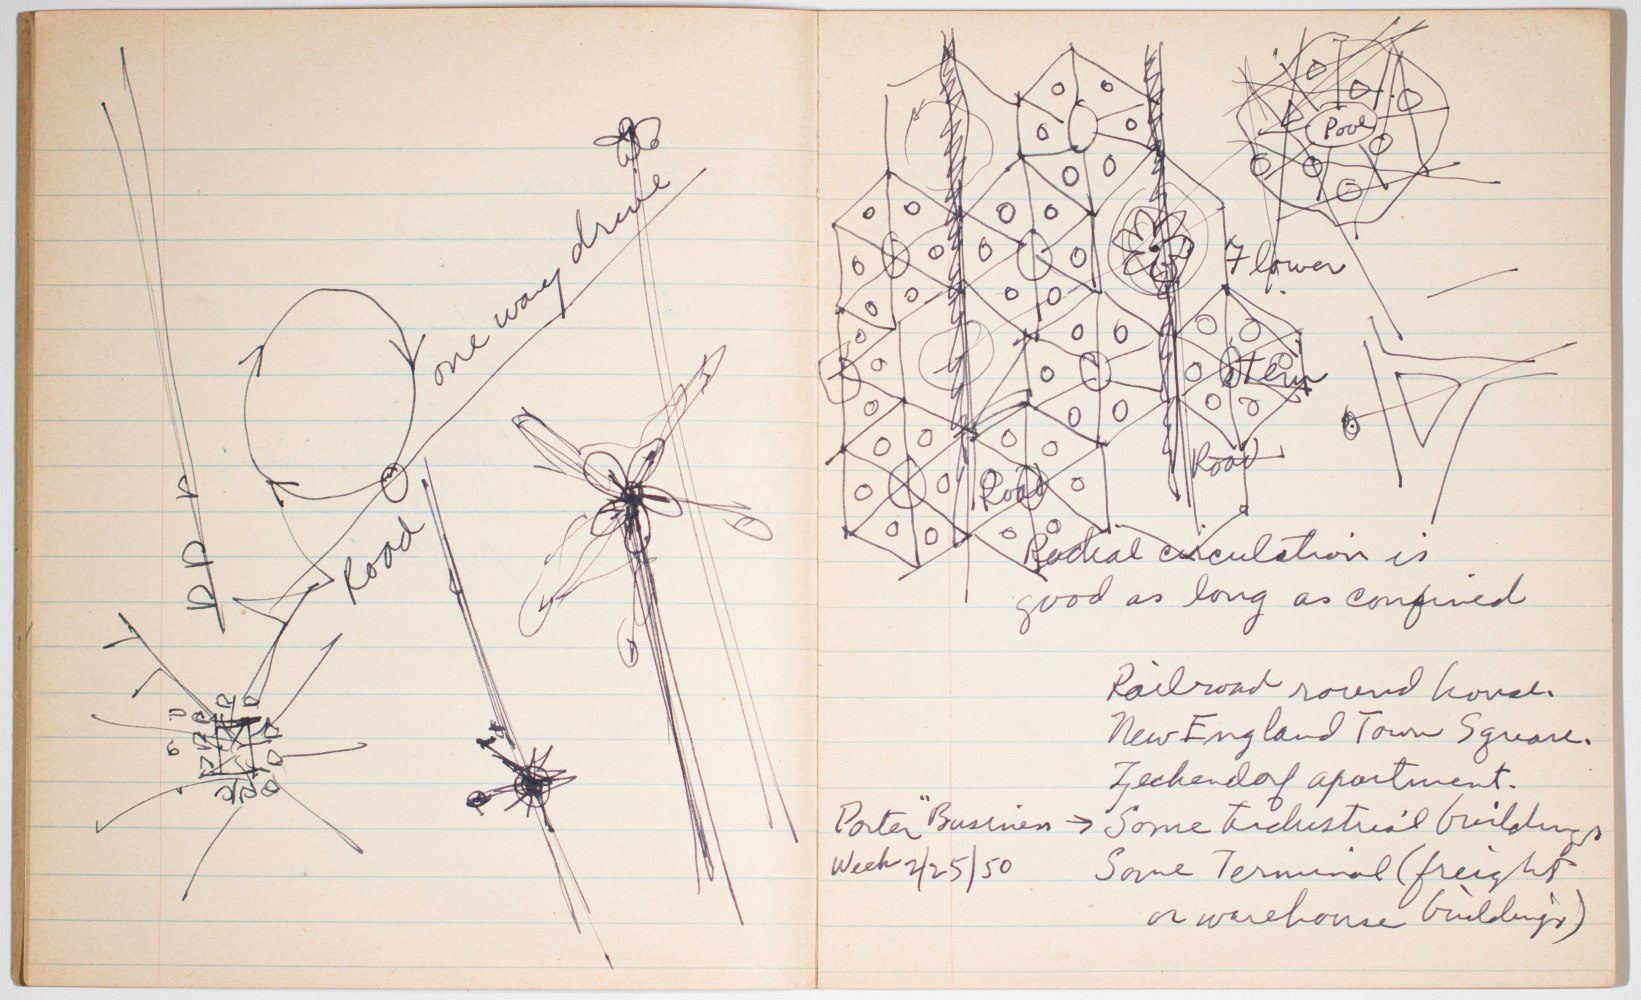 one way drive
Road
Pool
Flower
Stem
Road
Road
Radial circulation is
good as long as confined
Railroad round house.
New England Town Square.
Zeckendorf apartment.
Porter "Business → Some industrial buildings
Week 2/25/50 Some Terminal (freight
or warehouse buildings)